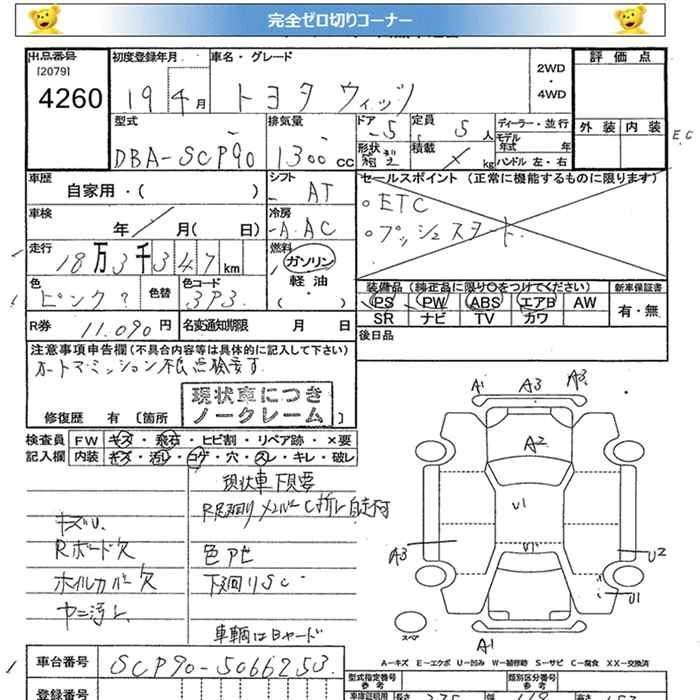 完全ゼロ切りコーナー
出品番号
[2079]
4260
初度登録年月
19 4月
車名・グレード
トヨタ ヴィッツ
2WD
・
4WD
評価点
外装 内装
E.C
型式
DBA-SCP90
排気量
1300cc
ドア
5
定員
5人
形状
積載
kg
ディーラー・並行
モデル年式 年
ハンドル 左・右
車歴
自家用・( )
シフト
AT
セールスポイント(正常に機能するものに限ります)
○ETC
○プッシュスタート
車検
年 月( 日)
冷房
AAC
走行
18万3千347km
燃料
ガソリン
軽油
・( )
色
ピンク?
色替
色コード
3P3
装備品(純正品に限り○をつけてください)
PS PW ABS エアB AW
SR ナビ TV カワ
新車保証書
有・無
R券
11.090円
名変通知期限 月 日
後日品
注意事項申告欄(不具合内容等は具体的に記入して下さい)
オートマミッション不良
現状車につき
ノークレーム
修復歴 有[箇所 ]
検査員
記入欄
FW キズ・飛石・ヒビ割・リペア跡・×要
内装 キズ・汚レ・コゲ・穴・スレ・キレ・破レ
現状車下見要
R足回りメンバーC折レ自走不可
キズU.
Rボード欠
色アセ
ホイルカバー欠
下廻りSC
ヤニ汚レ
車輌はBヤード
A1 A3 A3
A2
U1
U1
A3
U2
U1
A1
スペア
A-キズ E-エクボ U-凹み W-補修跡 S-サビ C-腐食 XX-交換済
車台番号
SCP90-5066253
登録番号
型式指定番号
参考
類別区分番号
参考
車庫証明用
長さ
375
幅
高さ